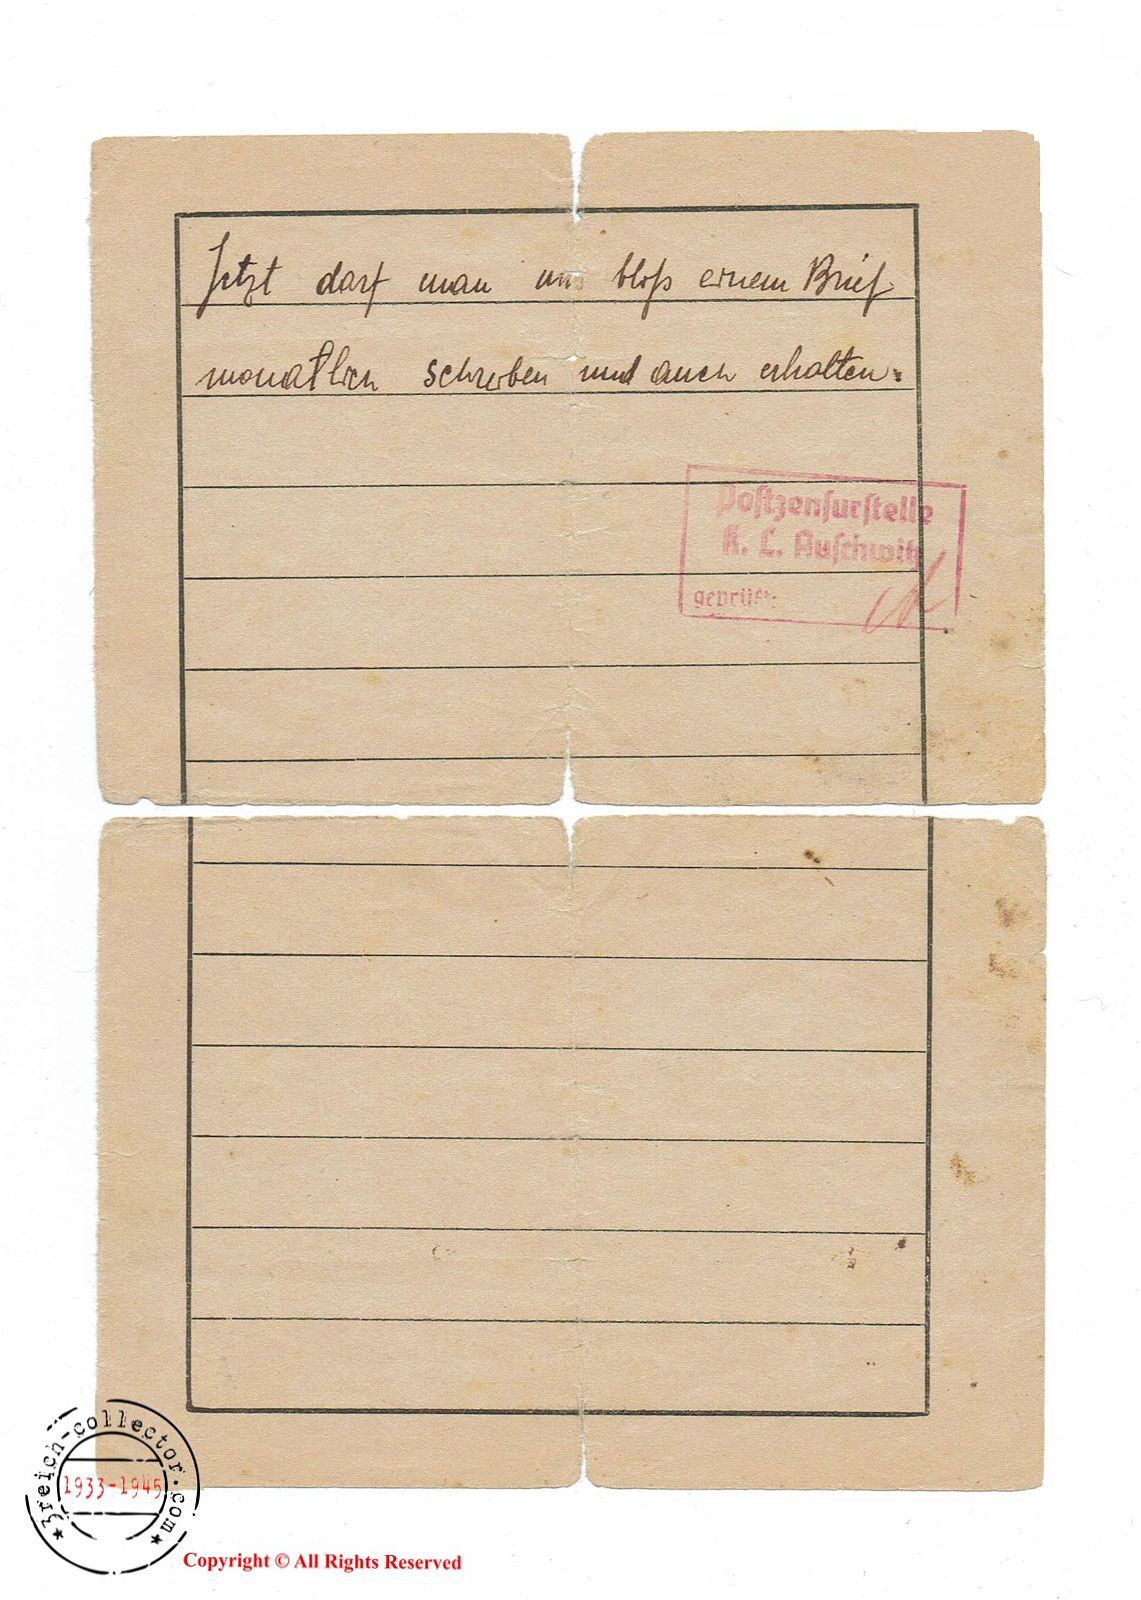 Jetzt darf man uns bloß einem Brief
monatlich schreiben und auch erhalten.
Postzensurstelle
K. L. Auschwitz
geprüft:
3reich-collector.com
1933-1945
Copyright © All Rights Reserved